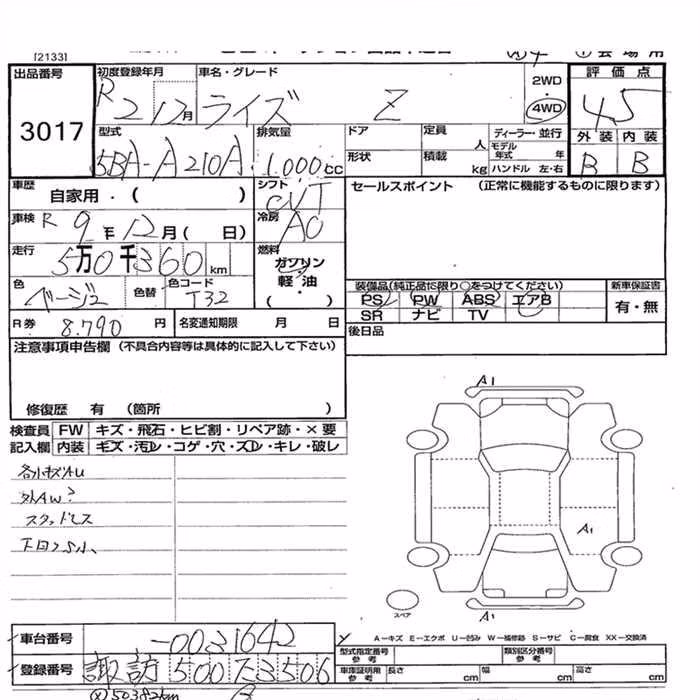 [2133]
出品番号 3017
初度登録年月 R 2 12月
車名・グレード ライズ Z
2WD
4WD
評価点 4.5
外装 内装
B B
型式 5BA-A210A
排気量 1.000cc
ドア
定員 人
ディーラー・並行
モデル年式 年
形状
積載 kg
ハンドル 左・右
車歴 自家用・( )
シフト CVT
セールスポイント (正常に機能するものに限ります)
車検 R 9年12月( 日)
冷房 AC
走行 5万0千360km
燃料 ガソリン
軽・油
( )
色 ベージュ 色替 色コード T32
装備品(純正品に限り○をつけてください) 新車保証書
PS PW ABS エアB
SR ナビ TV
有・無
R券 8.790円 名変通知期限 月 日
後日品
注意事項申告欄 (不具合内容等は具体的に記入して下さい)
修復歴 有 (箇所 )
検査員 FW キズ・飛石・ヒビ割・リペア跡・×要
記入欄 内装 キズ・汚レ・コゲ・穴・スレ・キレ・破レ
各小キズAU
外AW?
スタッドレス
下回りS小
A1
A1
スペア
A1
A−キズ E−エクボ U−凹み W−補修跡 S−サビ C−腐食 XX−交換済
車台番号 -0031642
登録番号 諏訪 500 て3506
型式指定番号 参考 類別区分番号 参考
車庫証明用 参考 長さ cm 幅 cm 高さ cm